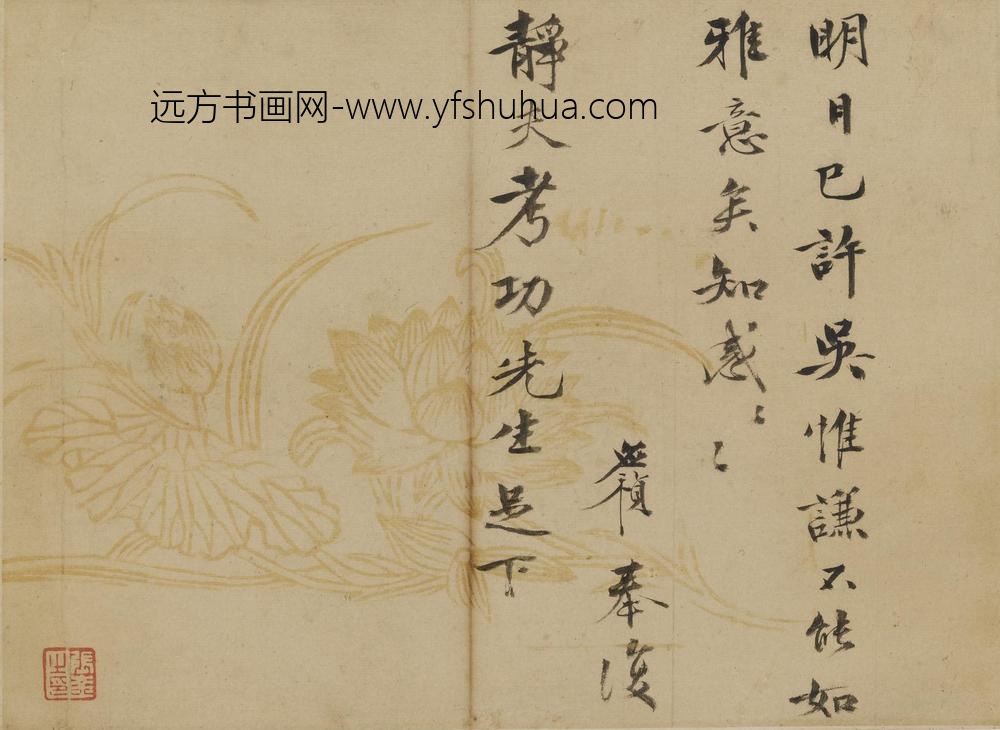 明日已許吳惟謙不能如
雅意矣知感〻〻
奉復
靜夫考功先生足下
远方书画网-www.yfshuhua.com